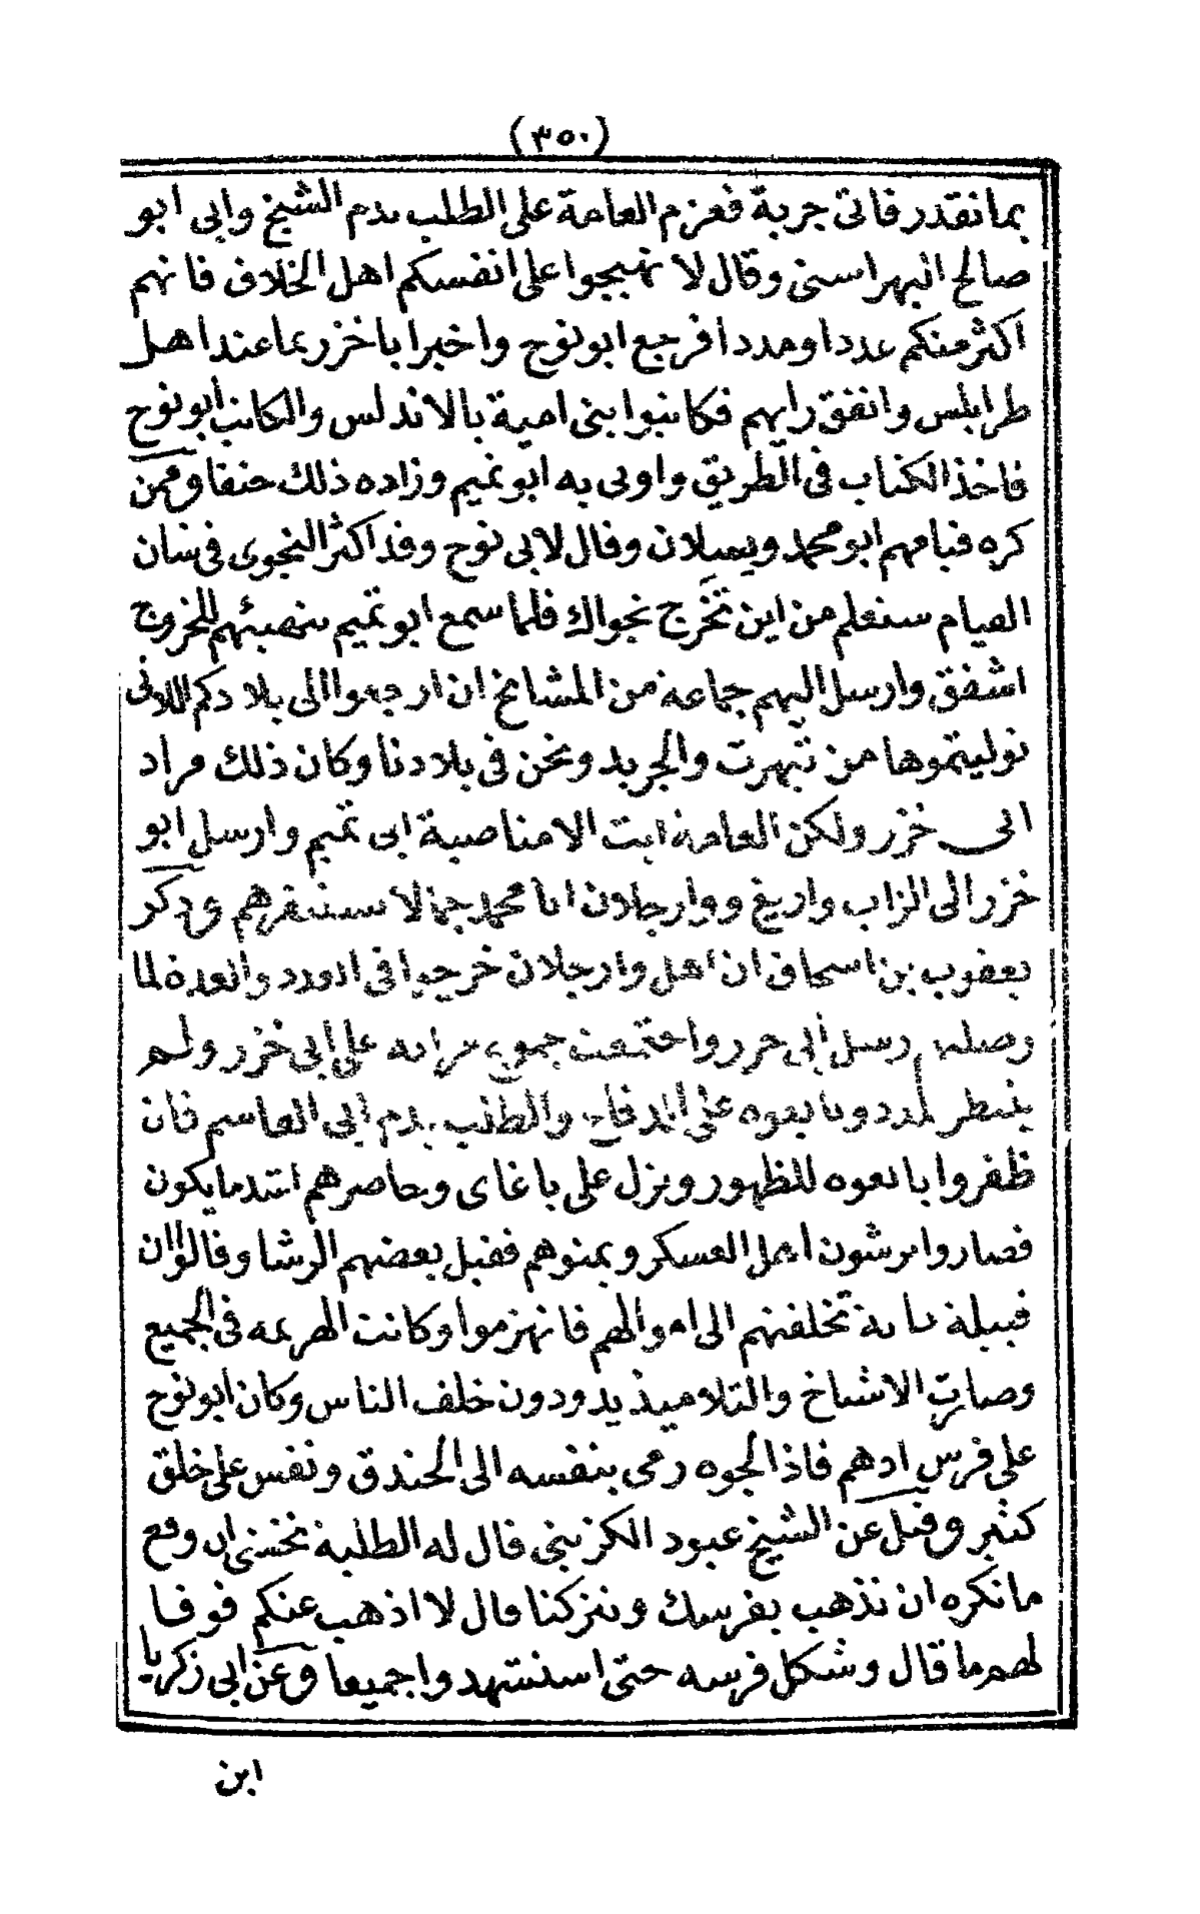 (٣٥٠)
بما نقدر فاتى جربة فعزم العامة على الطلب بدم الشيخ وابى ابو
صالح اليهراسنى وقال لا تهيجوا على انفسكم اهل الخلاف فانهم
اكثر منكم عددا ومددا فرجع ابو نوح واخبر ابا خزر بما عند اهل
طرابلس واتفق رايهم فكاتبوا بنى امية بالاندلس والكاتب ابو نوح
فاخذ الكتاب فى الطريق واوتى به ابو تميم وزاده ذلك حنقا وممن
كره قيامهم ابو محمد ويسلان وقال لابى نوح وقد اكثر النجوى فى شان
القيام ستعلم من اين تخرج نجواك فلما سمع ابو تميم بتهيئهم للخروج
اشفق وارسل اليهم جماعة من المشايخ ان ارجعوا الى بلادكم اللاتى
توليتموها من تيهرت والجريد ونحن فى بلادنا وكان ذلك مراد
ابى خزر ولكن العامة ابت الا مناصبة ابى تميم وارسل ابو
خزر الى الزاب واريغ ووارجلان ابا محمد جمالا يستنفرهم وذكر
يعقوب بن اسحاق ان اهل وارجلان خرجوا فى العدد والعدة لما
وصلهم رسل ابى خزر واجتمعت جموع مزاته على ابى خزر ولم
ينتظر المدد وبايعوه على الدفاع والطلب بدم ابى القاسم فان
ظفروا بايعوه للظهور ونزل على باغاى وحاصرهم اشد ما يكون
فصاروا يرشون اهل العسكر ويمنوهم فقبل بعضهم الرشا وقالوا ان
قبيلة كذا تخلفتهم الى اموالهم فانهزموا وكانت الهزيمه فى الجميع
وصارت الاشياخ والتلاميذ يذودون خلف الناس وكان ابو نوح
على فرس ادهم فاذا الجوه رمى بنفسه الى الخندق ونفس على خلق
كثير وقيل عن الشيخ عبود الكزينى قال له الطلبة نخشى ان وقع
ما نكره ان تذهب بفرسك وتتركنا قال لا اذهب عنكم فوفا
لهم ما قال وشكل فرسه حتى استشهدوا جميعا وعن ابى زكريا
ابن